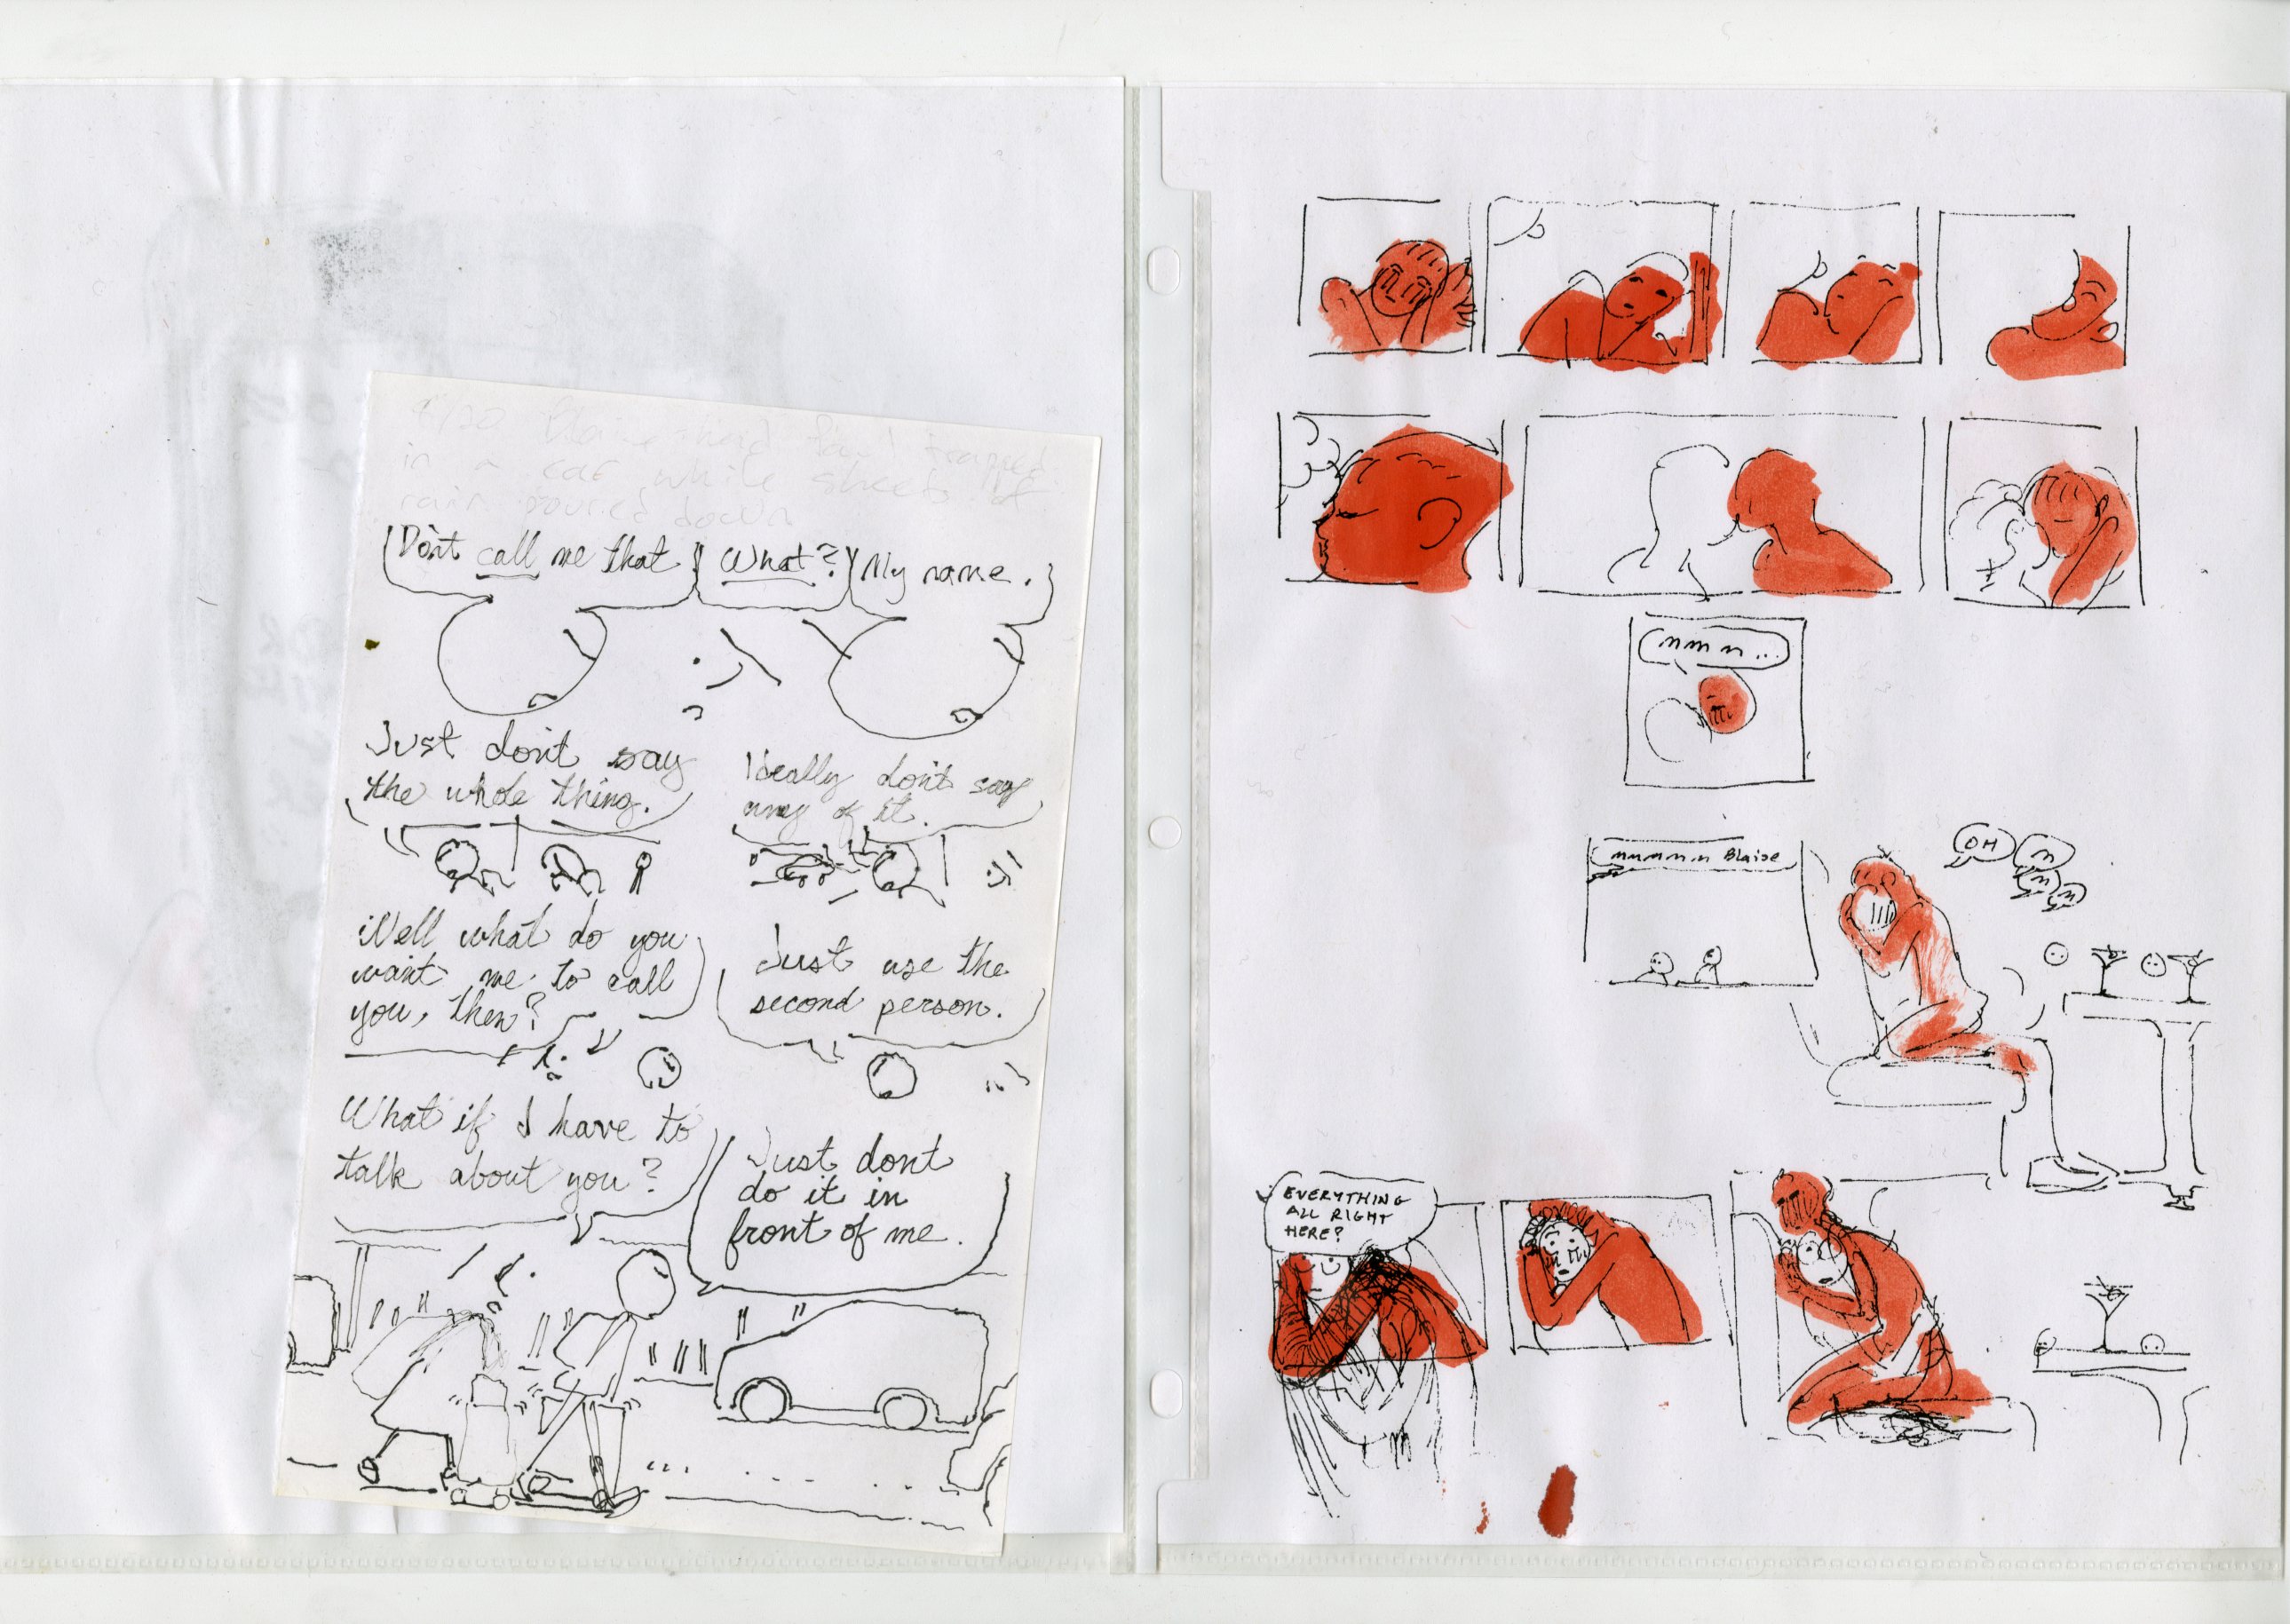 trapped
in a car while sheets of
rain poured down
Don't call me that
What?
My name.
Just don't say
the whole thing.
Ideally don't say
any of it.
Well what do you
want me to call
you, then?
Just use the
second person.
What if I have to
talk about you?
Just dont
do it in
front of me.
mmm...
mmmmm Blaise
OH
m
m
m
EVERYTHING
ALL RIGHT
HERE?